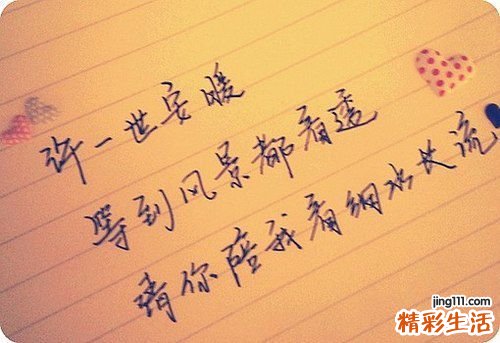 许一世安暖
等到风景都看透
请你陪我看细水长流
jing111.com
精彩生活